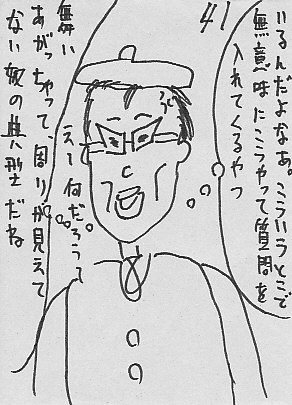 41
いるんだよなあ。こういうとこで
無意味にこうやって質問を
入れてくるやつ
えー何だろうて
舞い
あがっちゃって、周りが見えて
ない奴の典型だね